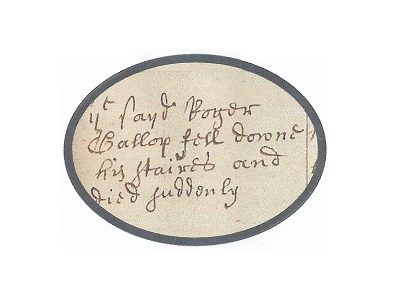 yͤ sayd Roger
Gallop fell downe
his staires and
died suddenly